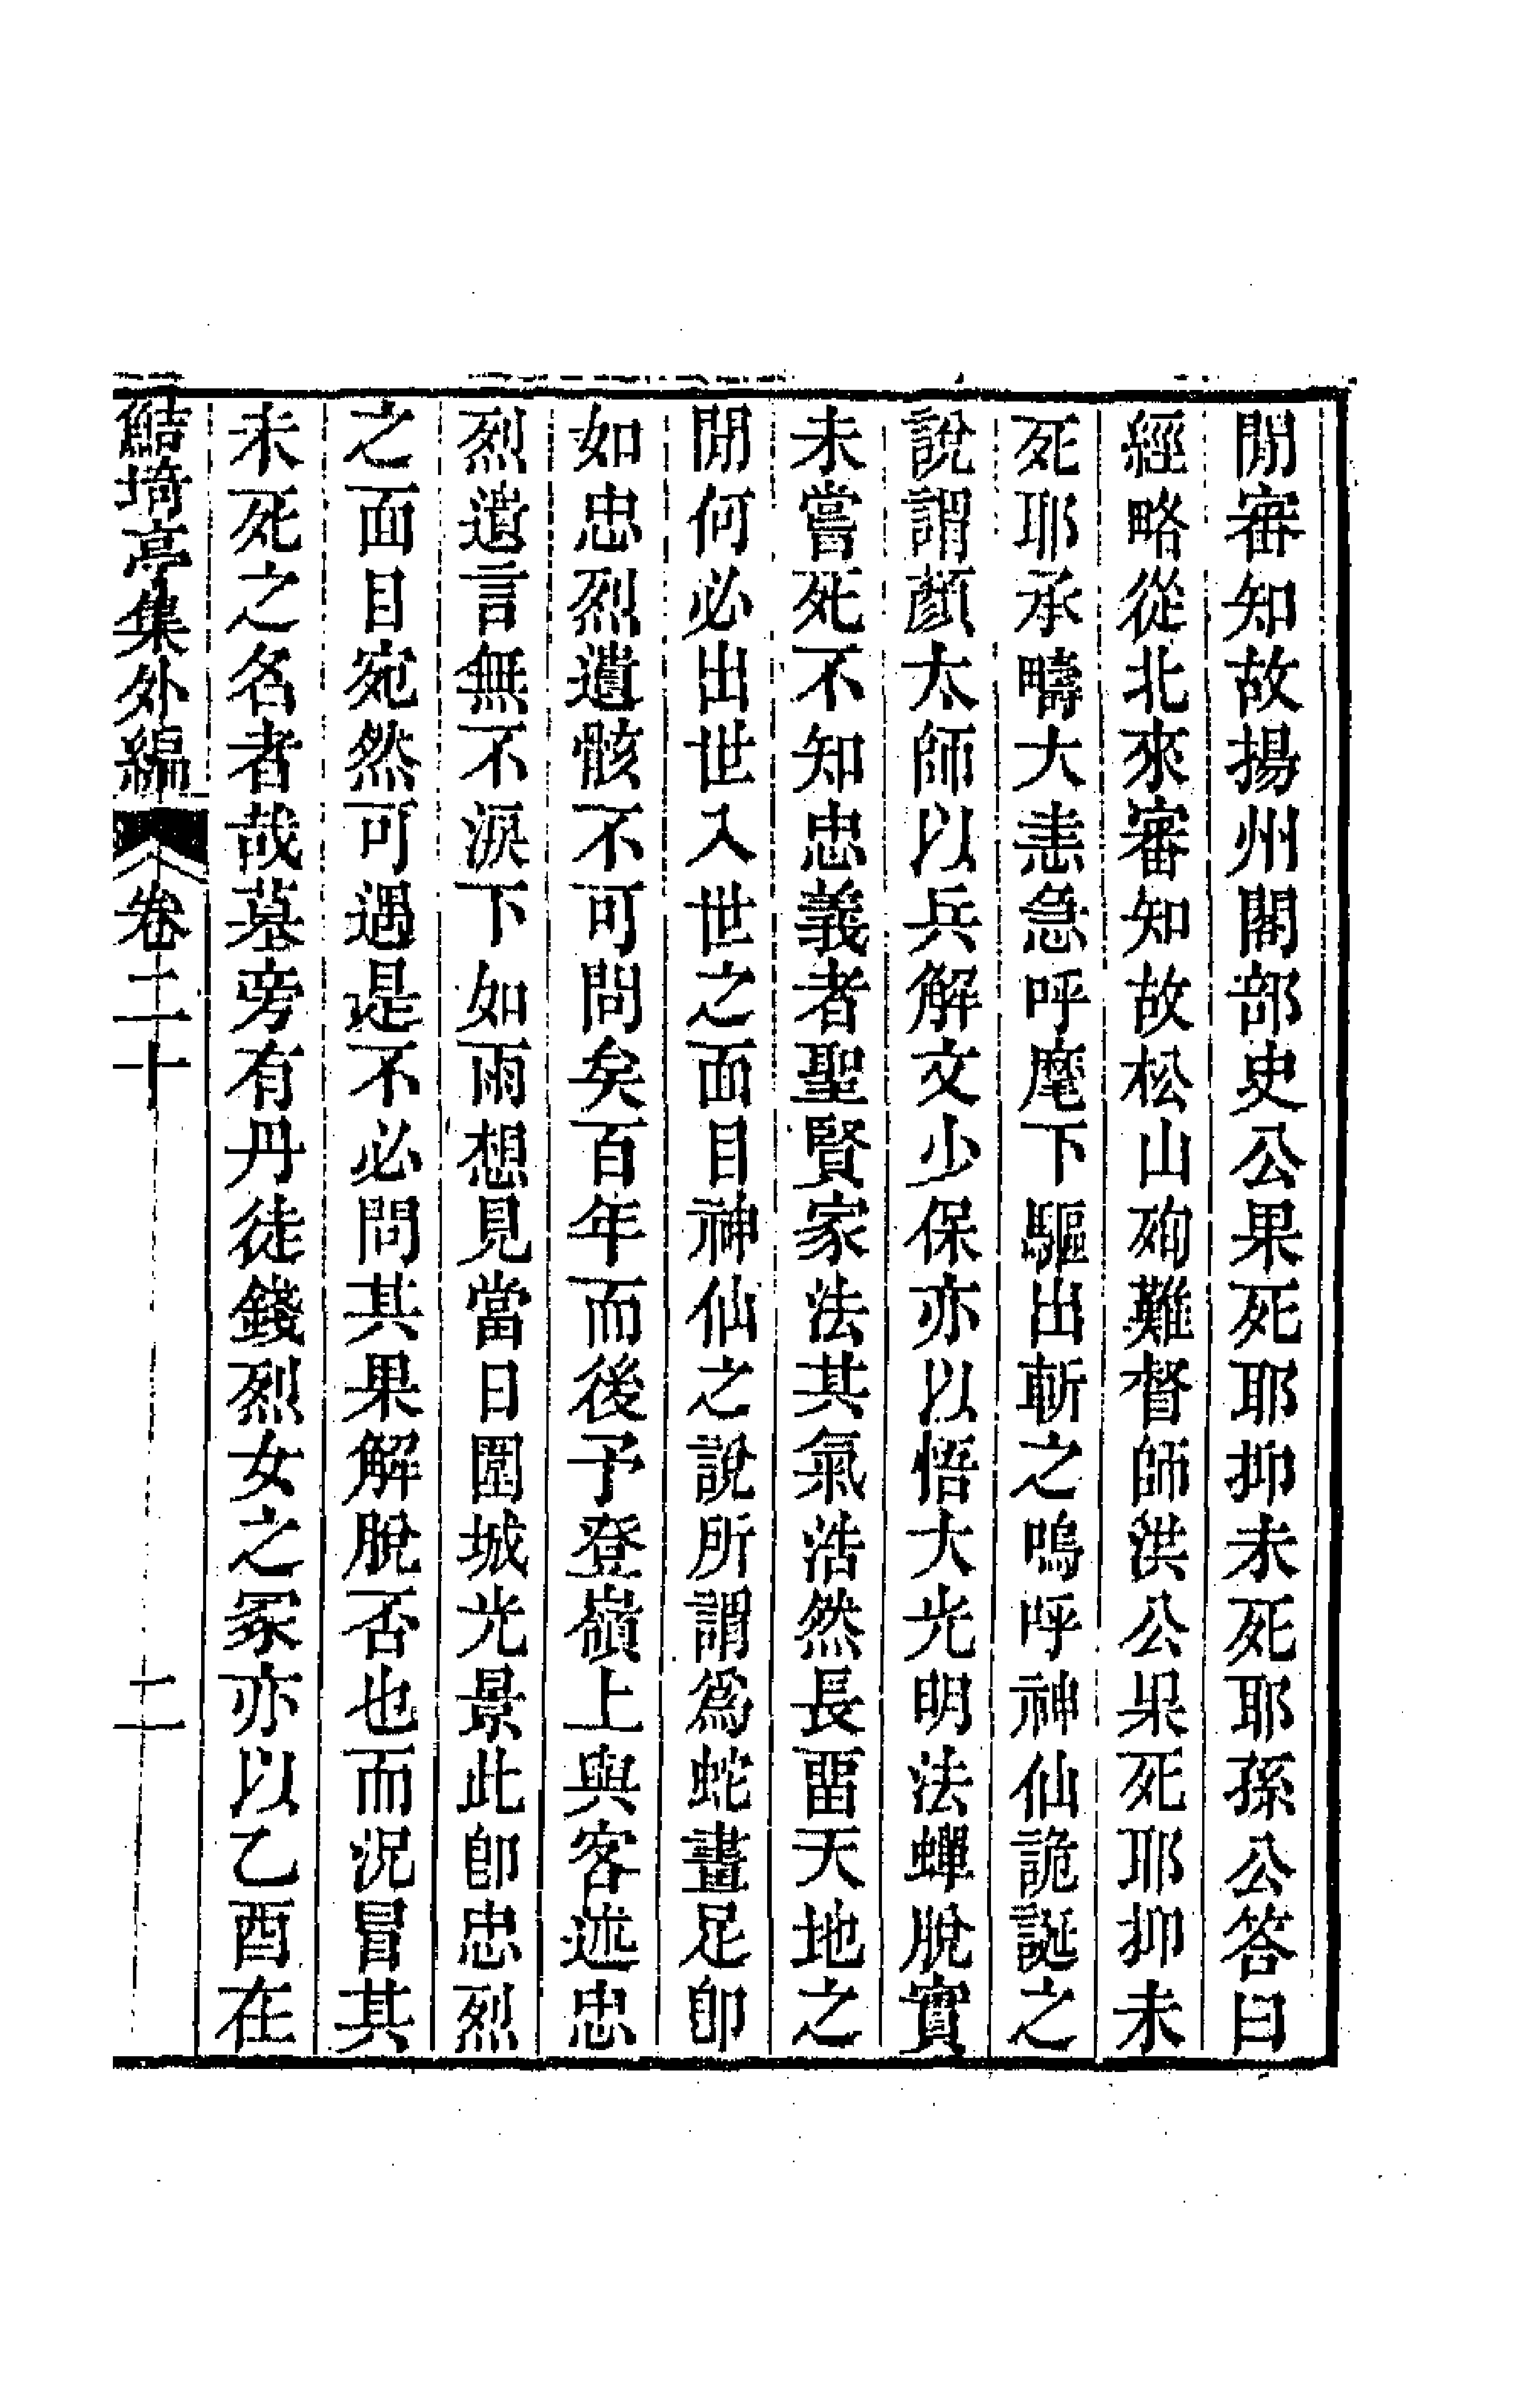 閒審知故揚州閣部史公果死耶抑未死耶孫公答曰
經略從北來審知故松山殉難督師洪公果死耶抑未
死耶承疇大恚急呼麾下驅出斬之嗚呼神仙詭誕之
說謂顏太師以兵解文少保亦以悟大光明法蟬脫實
未嘗死不知忠義者聖賢家法其氣浩然長畱天地之
閒何必出世入世之面目神仙之說所謂爲蛇畫足卽
如忠烈遺骸不可問矣百年而後予登嶺上與客述忠
烈遺言無不淚下如雨想見當日圍城光景此卽忠烈
之面目宛然可遇是不必問其果解脫否也而況冒其
未死之名者哉墓旁有丹徒錢烈女之冢亦以乙酉在
鮚埼亭集外編 卷二十 二